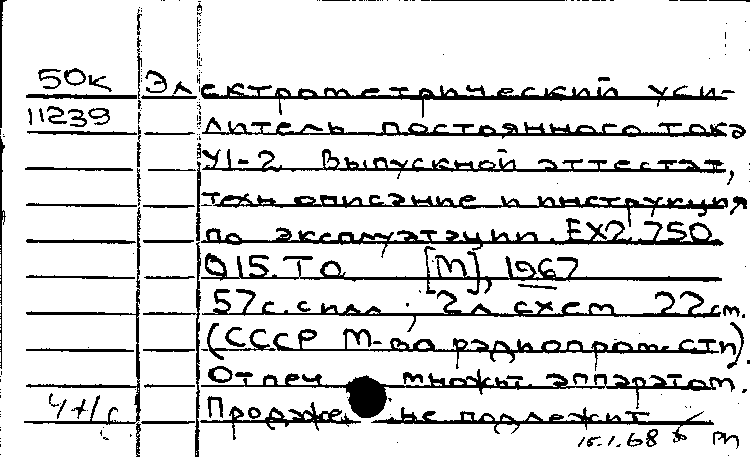 50к Электрометрический уси-
11239 литель постоянного тока
У1-2 Выпускной аттестат,
техн описание и инструкция
по эксплуатации. ЕХ2.750
015.ТО [М], 1967
57с. с илл ; 2л схем 22 см.
(СССР М-во радиопром-сти)
Отпеч множит. аппаратом.
Продаже не подлежит
15.1.68